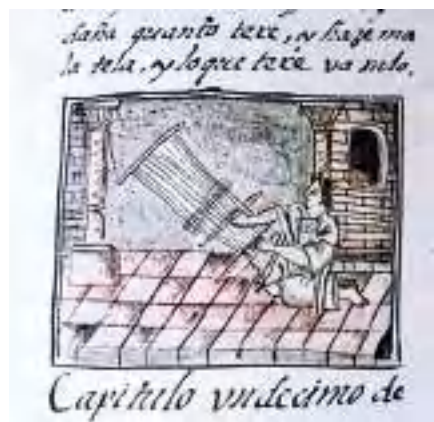 daña quanto texe, y haze ma
la tela, y lo que texe va nulo.
Capitulo vndecimo de